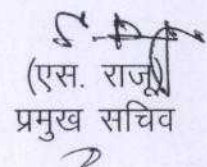 (एस. राजू)
प्रमुख सचिव